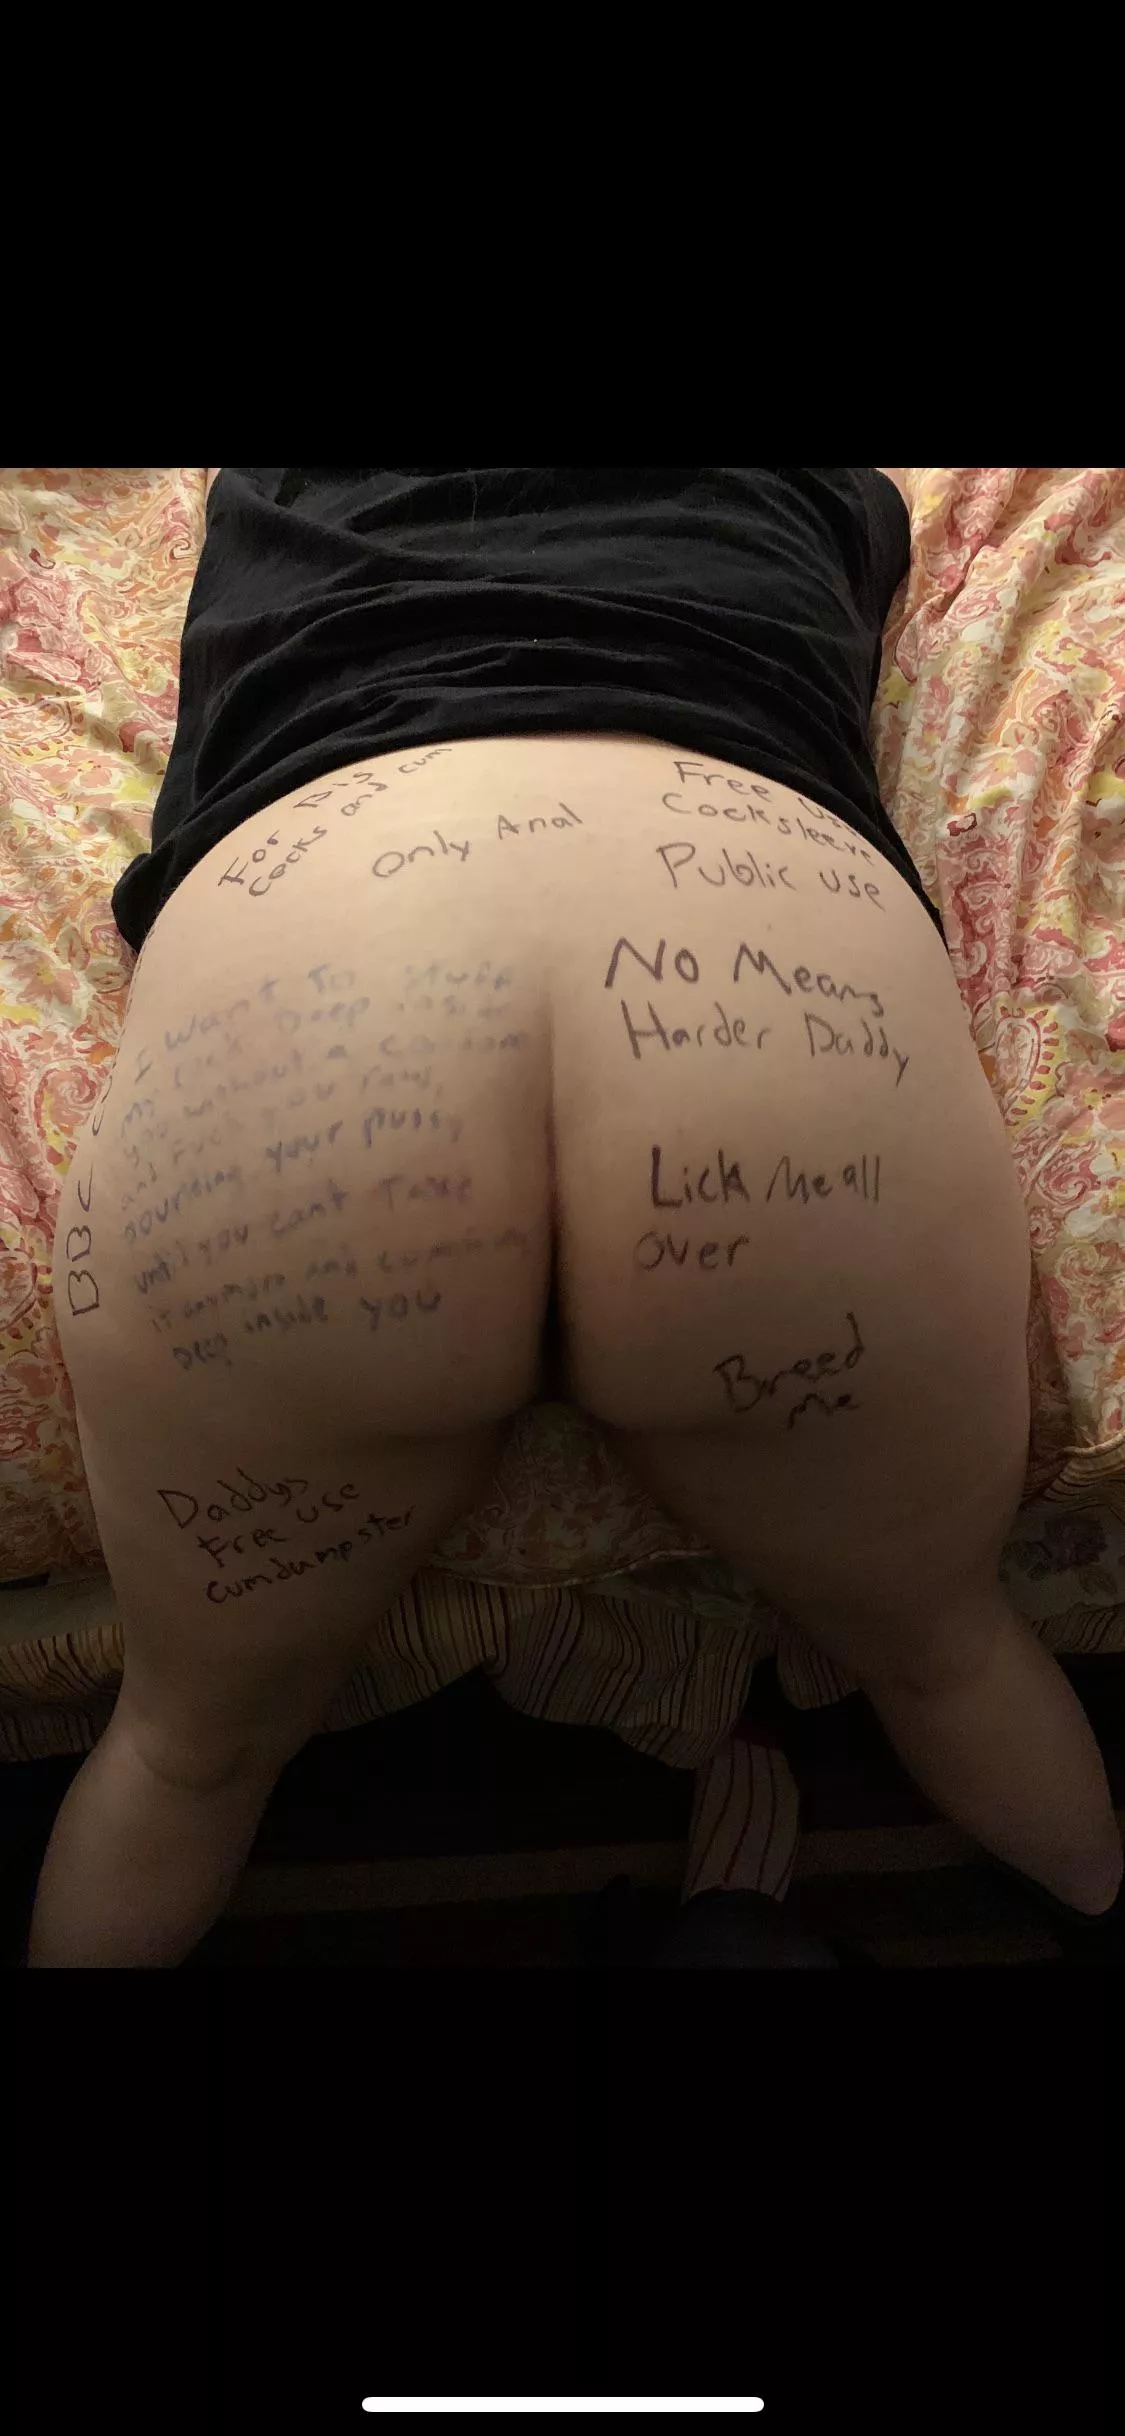 For
Cocks and cum
Only Anal
Free
Cocksleeve
Public use
No Means
Harder Daddy
Lick Me all
over
Breed
Me
BBC
I Want To Stuff
My Cock Deep
you without a
and Fuck you
your pussy
until you cant Take
it anymore and
Deep inside you
Daddys
Free use
cumdumpster